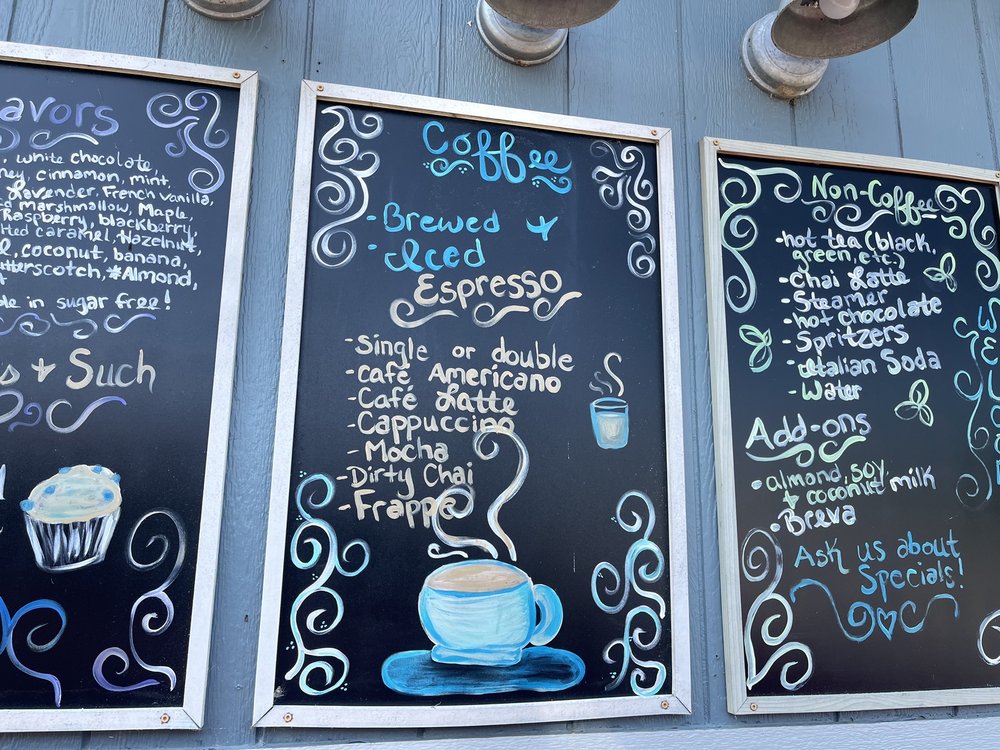 avors
, white chocolate,
ney, cinnamon, mint,
Lavender, French vanilla,
marshmallow, Maple,
Raspberry, blackberry,
lted caramel, Hazelnut,
coconut, banana,
tterscotch, *Almond,
le in sugar free!
s + Such
Coffee
- Brewed +
- Iced
Espresso
- Single or double
- Café Americano
- Café Latte
- Cappuccino
- Mocha
- Dirty Chai
- Frappé
Non-Coffee
- hot tea (black,
green, etc.)
- Chai Latte
- Steamer
- hot chocolate
- Spritzers
- Italian Soda
- Water
Add-ons
- almond, soy,
+ coconut milk
- Breva
Ask us about
Specials!